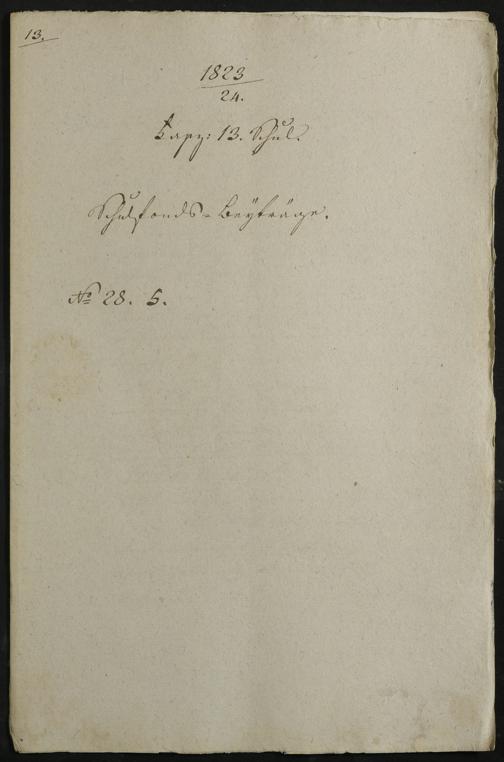 13.
1823
24.
Kapz: 13. Schul.
Schulfonds-Beÿträge.
No 28. 5.